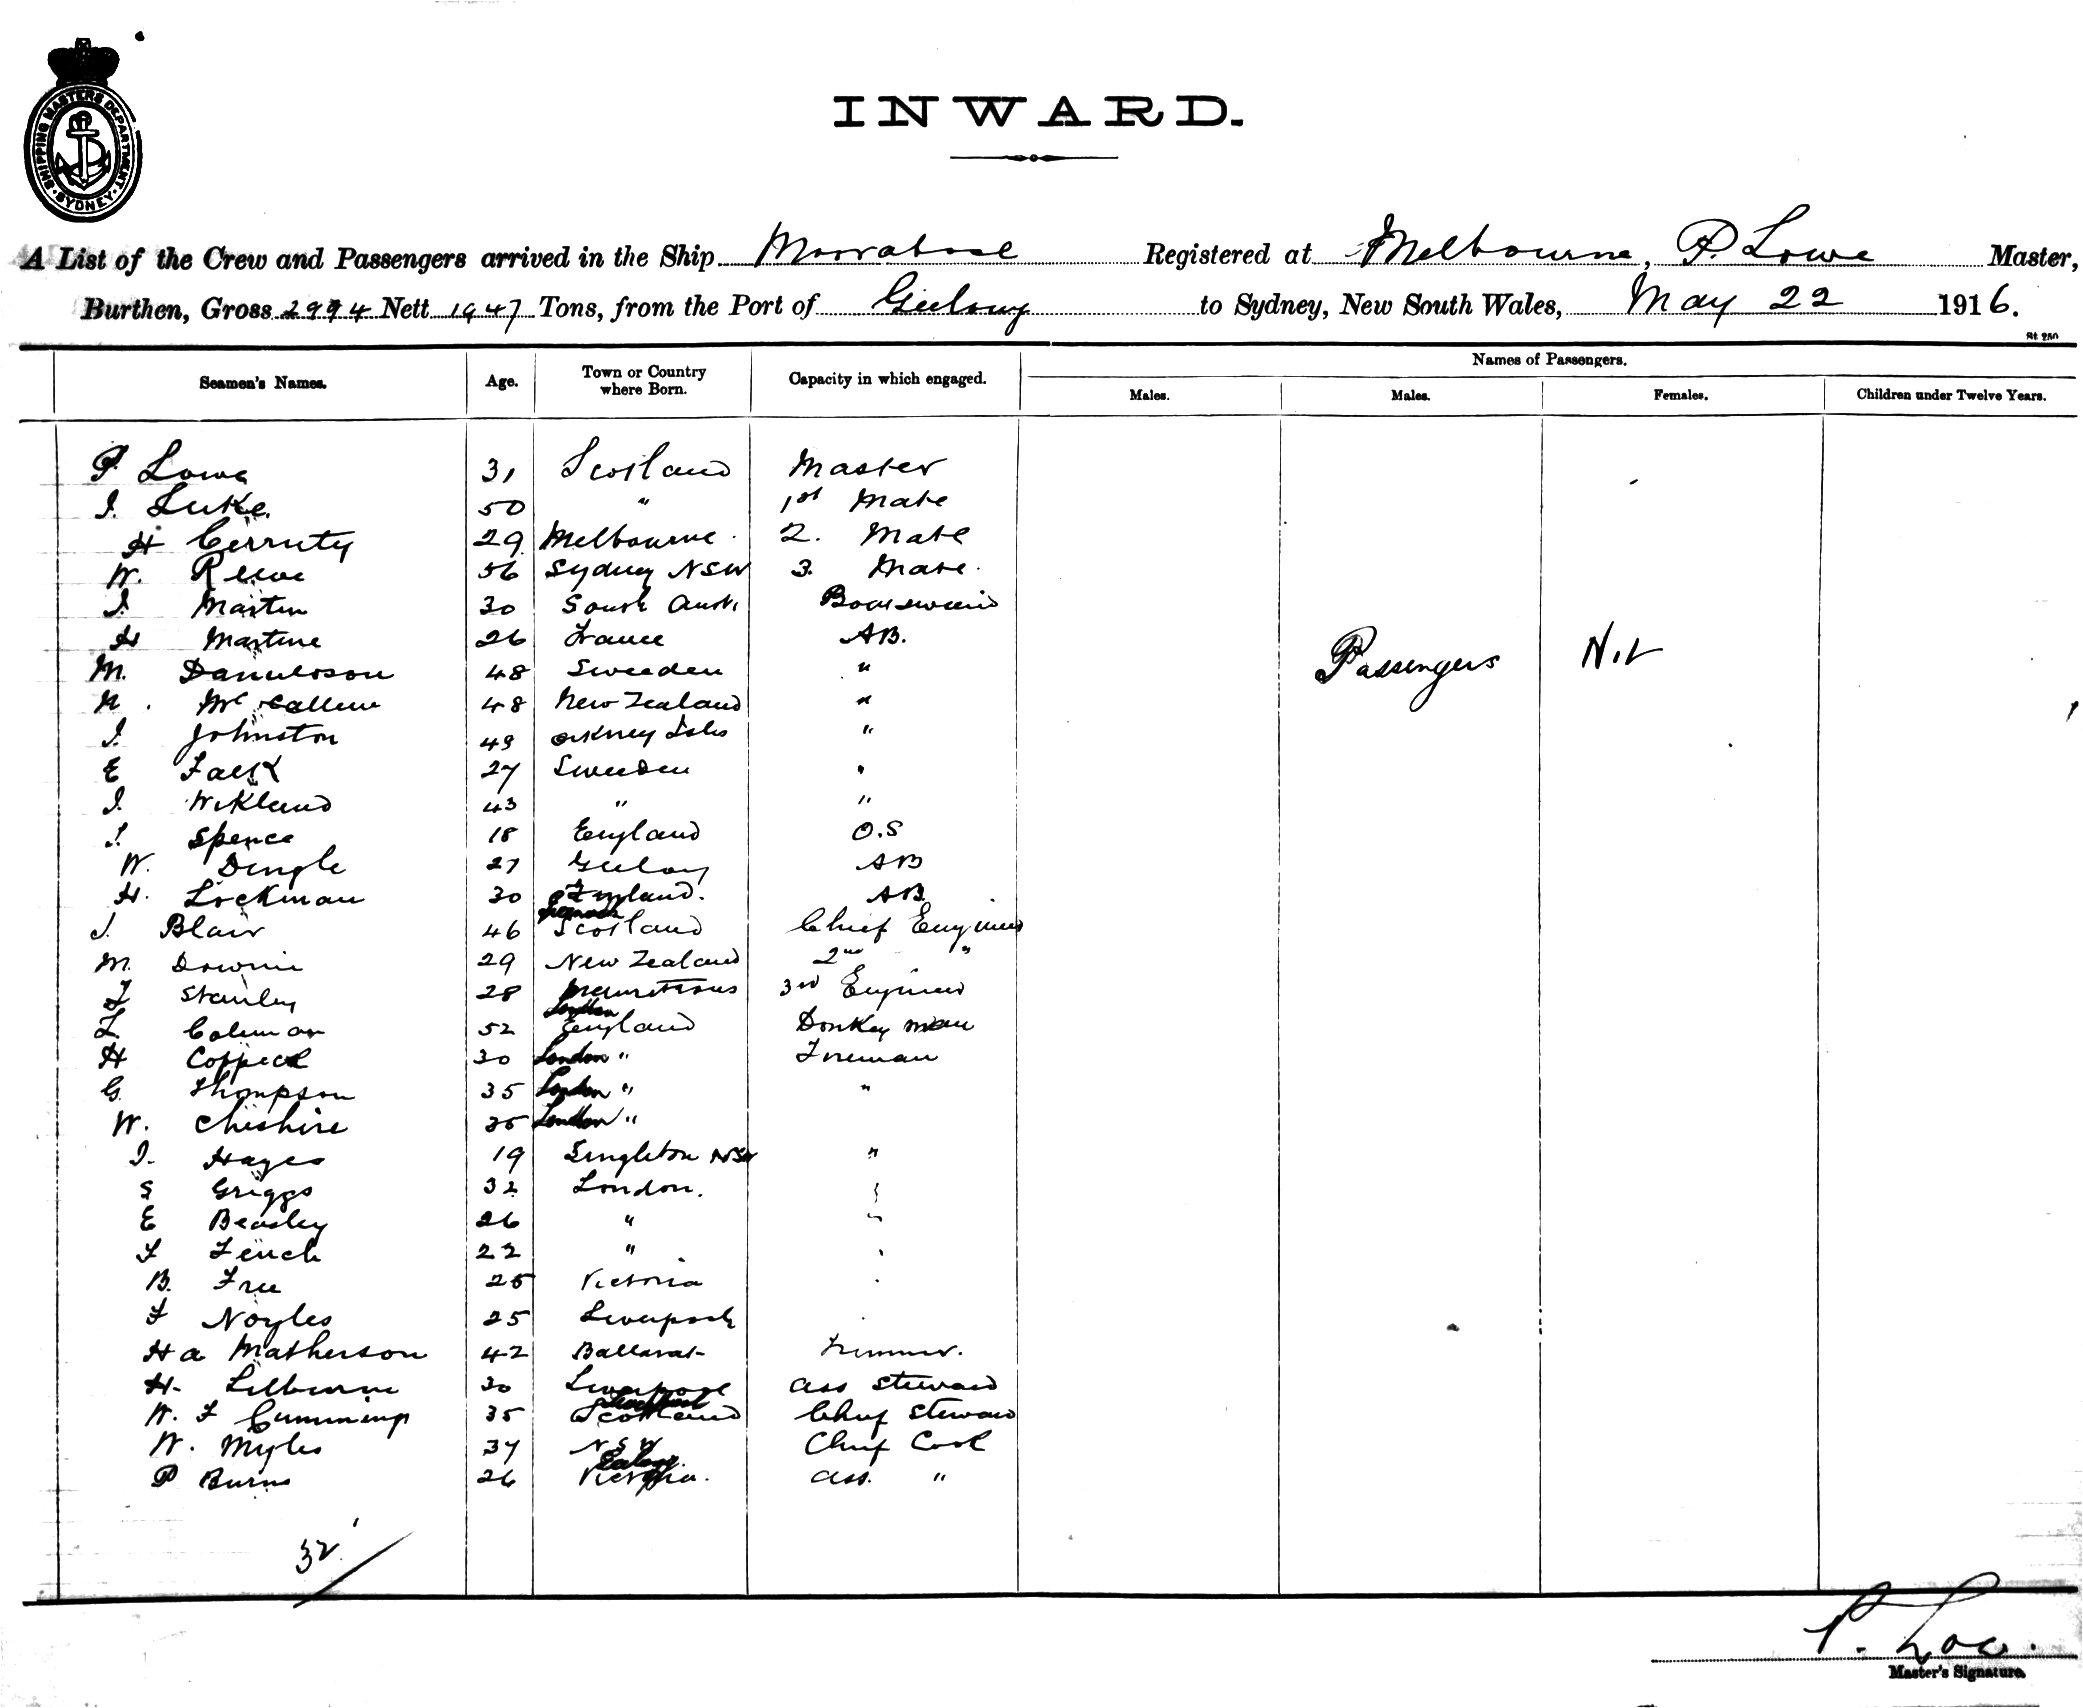 SHIPPING MASTERS DEPARTMENT
SYDNEY
INWARD.
A List of the Crew and Passengers arrived in the Ship Moorabool Registered at Melbourne, P. Lowe Master,
Burthen, Gross 2994 Nett 1947 Tons, from the Port of Geelong to Sydney, New South Wales, May 22 1916.
St. 250
Seamen's Names. Age. Town or Country where Born. Capacity in which engaged. Names of Passengers.
Males. Males. Females. Children under Twelve Years.
P Lowe 31 Scotland Master
J. Luke 50 " 1st Mate
H Cerruty 29 Melbourne 2. Mate
W. Reeve 56 Sydney NSW 3. Mate
J. Martin 30 South Aust. Boatswain
H Martine 26 France AB.
Passengers Nil
M. Danielson 48 Sweeden "
N. McCallum 48 New Zealand "
J. Johnston 49 Orkney Isles "
E Falk 27 Sweeden "
J. Wikland 43 " "
J. Spence 18 England O.S
W. Dingle 27 Geelong AB
H. Lockman 30 England. AB
J. Blair 46 Scotland Chief Engineer
M. Downie 29 New Zealand 2nd "
F Stanley 28 Mauritious 3rd Engineer
F Coleman 52 London England Donkey man
H Coppeck 30 London " Fireman
G Thompson 35 London " "
W. Cheshire 35 London "
J. Hayes 19 Singleton NSW "
S Griggs 32 London. "
E Beasley 26 " "
F Fench 22 " "
B. Free 25 Victoria "
F Noyles 25 Liverpool
H a Matherson 42 Ballarat Trimmer.
H. Lilburne 30 Liverpool Ass Steward
W. F Cummings 35 Scotland Chief Steward
W. Myles 37 NSW Chief Cook
P Burns 26 Victoria. Ass. "
32
P. Low.
Master's Signature.